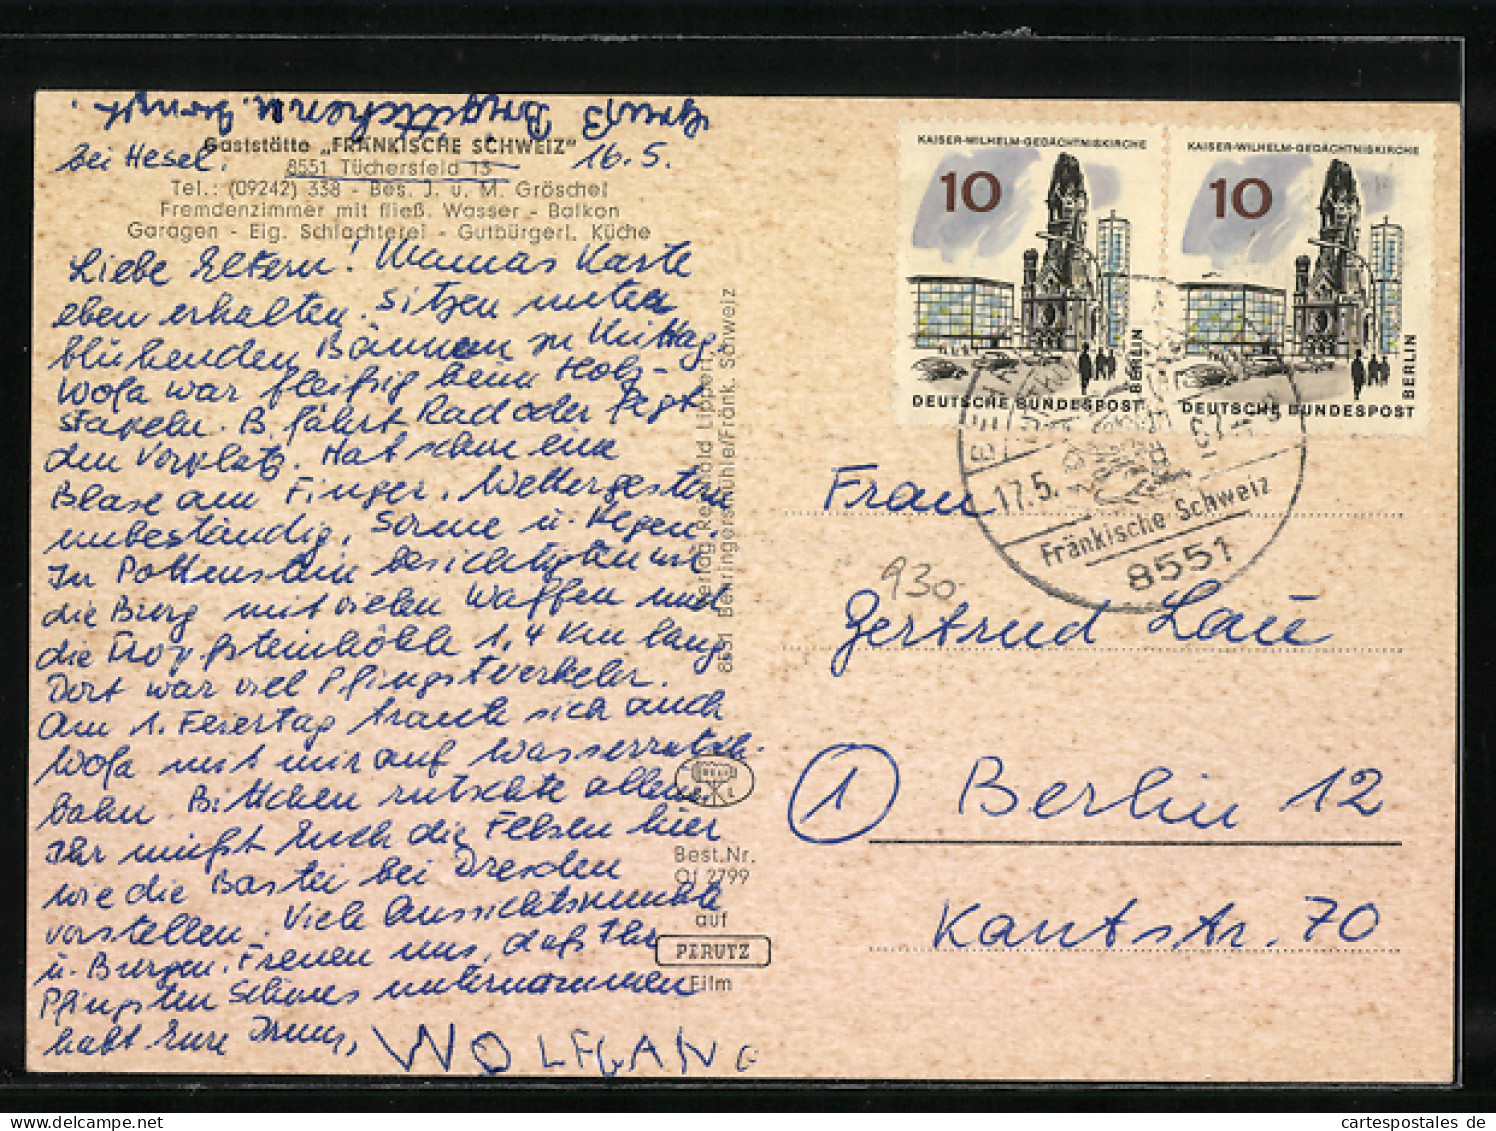 Gruß
Gaststätte „FRÄNKISCHE SCHWEIZ"
bei Hesel. 16.5.
8551 Tüchersfeld 13
Tel.: (09242) 338 - Bes. J. u. M. Gröschel
Fremdenzimmer mit fließ. Wasser - Balkon
Garagen - Eig. Schlachterei - Gutbürgerl. Küche
Liebe Eltern! Mamas Karte
eben erhalten. Sitzen unter
blühenden Bäumen zu Mittag.
Wolfg war fleißig beim Holz-
stapeln. B. fährt Rad oder fegt
den Vorplatz. Hat schon eine
Blase am Finger. Wetter gestern
unbeständig, Sonne u. Regen.
In Pottenstein besichtigten wir
die Burg mit vielen Waffen und
die Tropfsteinhöhle 1,4 Km lang.
Dort war viel Pfingstverkehr.
Am 1. Feiertag traute sich auch
Wolfg mit mir auf Wasserrutsch-
bahn. Bittchen rutschte allein.
Ihr müßt Euch die Felsen hier
wie die Bastei bei Dresden
vorstellen. Viele Aussichtspunkte
u. Burgen. Freuen uns, daß Ihr
Pfingsten Schönes unternommen
habt Eure
WOLFGANG
Verlag Reinhold Lippert,
8551 Behringersmühle/Fränk. Schweiz
Best.Nr.
Of 2799
auf
PERUTZ
Film
KAISER-WILHELM-GEDÄCHTNISKIRCHE
10
BERLIN
DEUTSCHE BUNDESPOST
KAISER-WILHELM-GEDÄCHTNISKIRCHE
10
BERLIN
DEUTSCHE BUNDESPOST
17.5.
Fränkische Schweiz
8551
930.-
Frau
Gertrud Lau
① Berlin 12
Kantstr. 70
cartespostales de